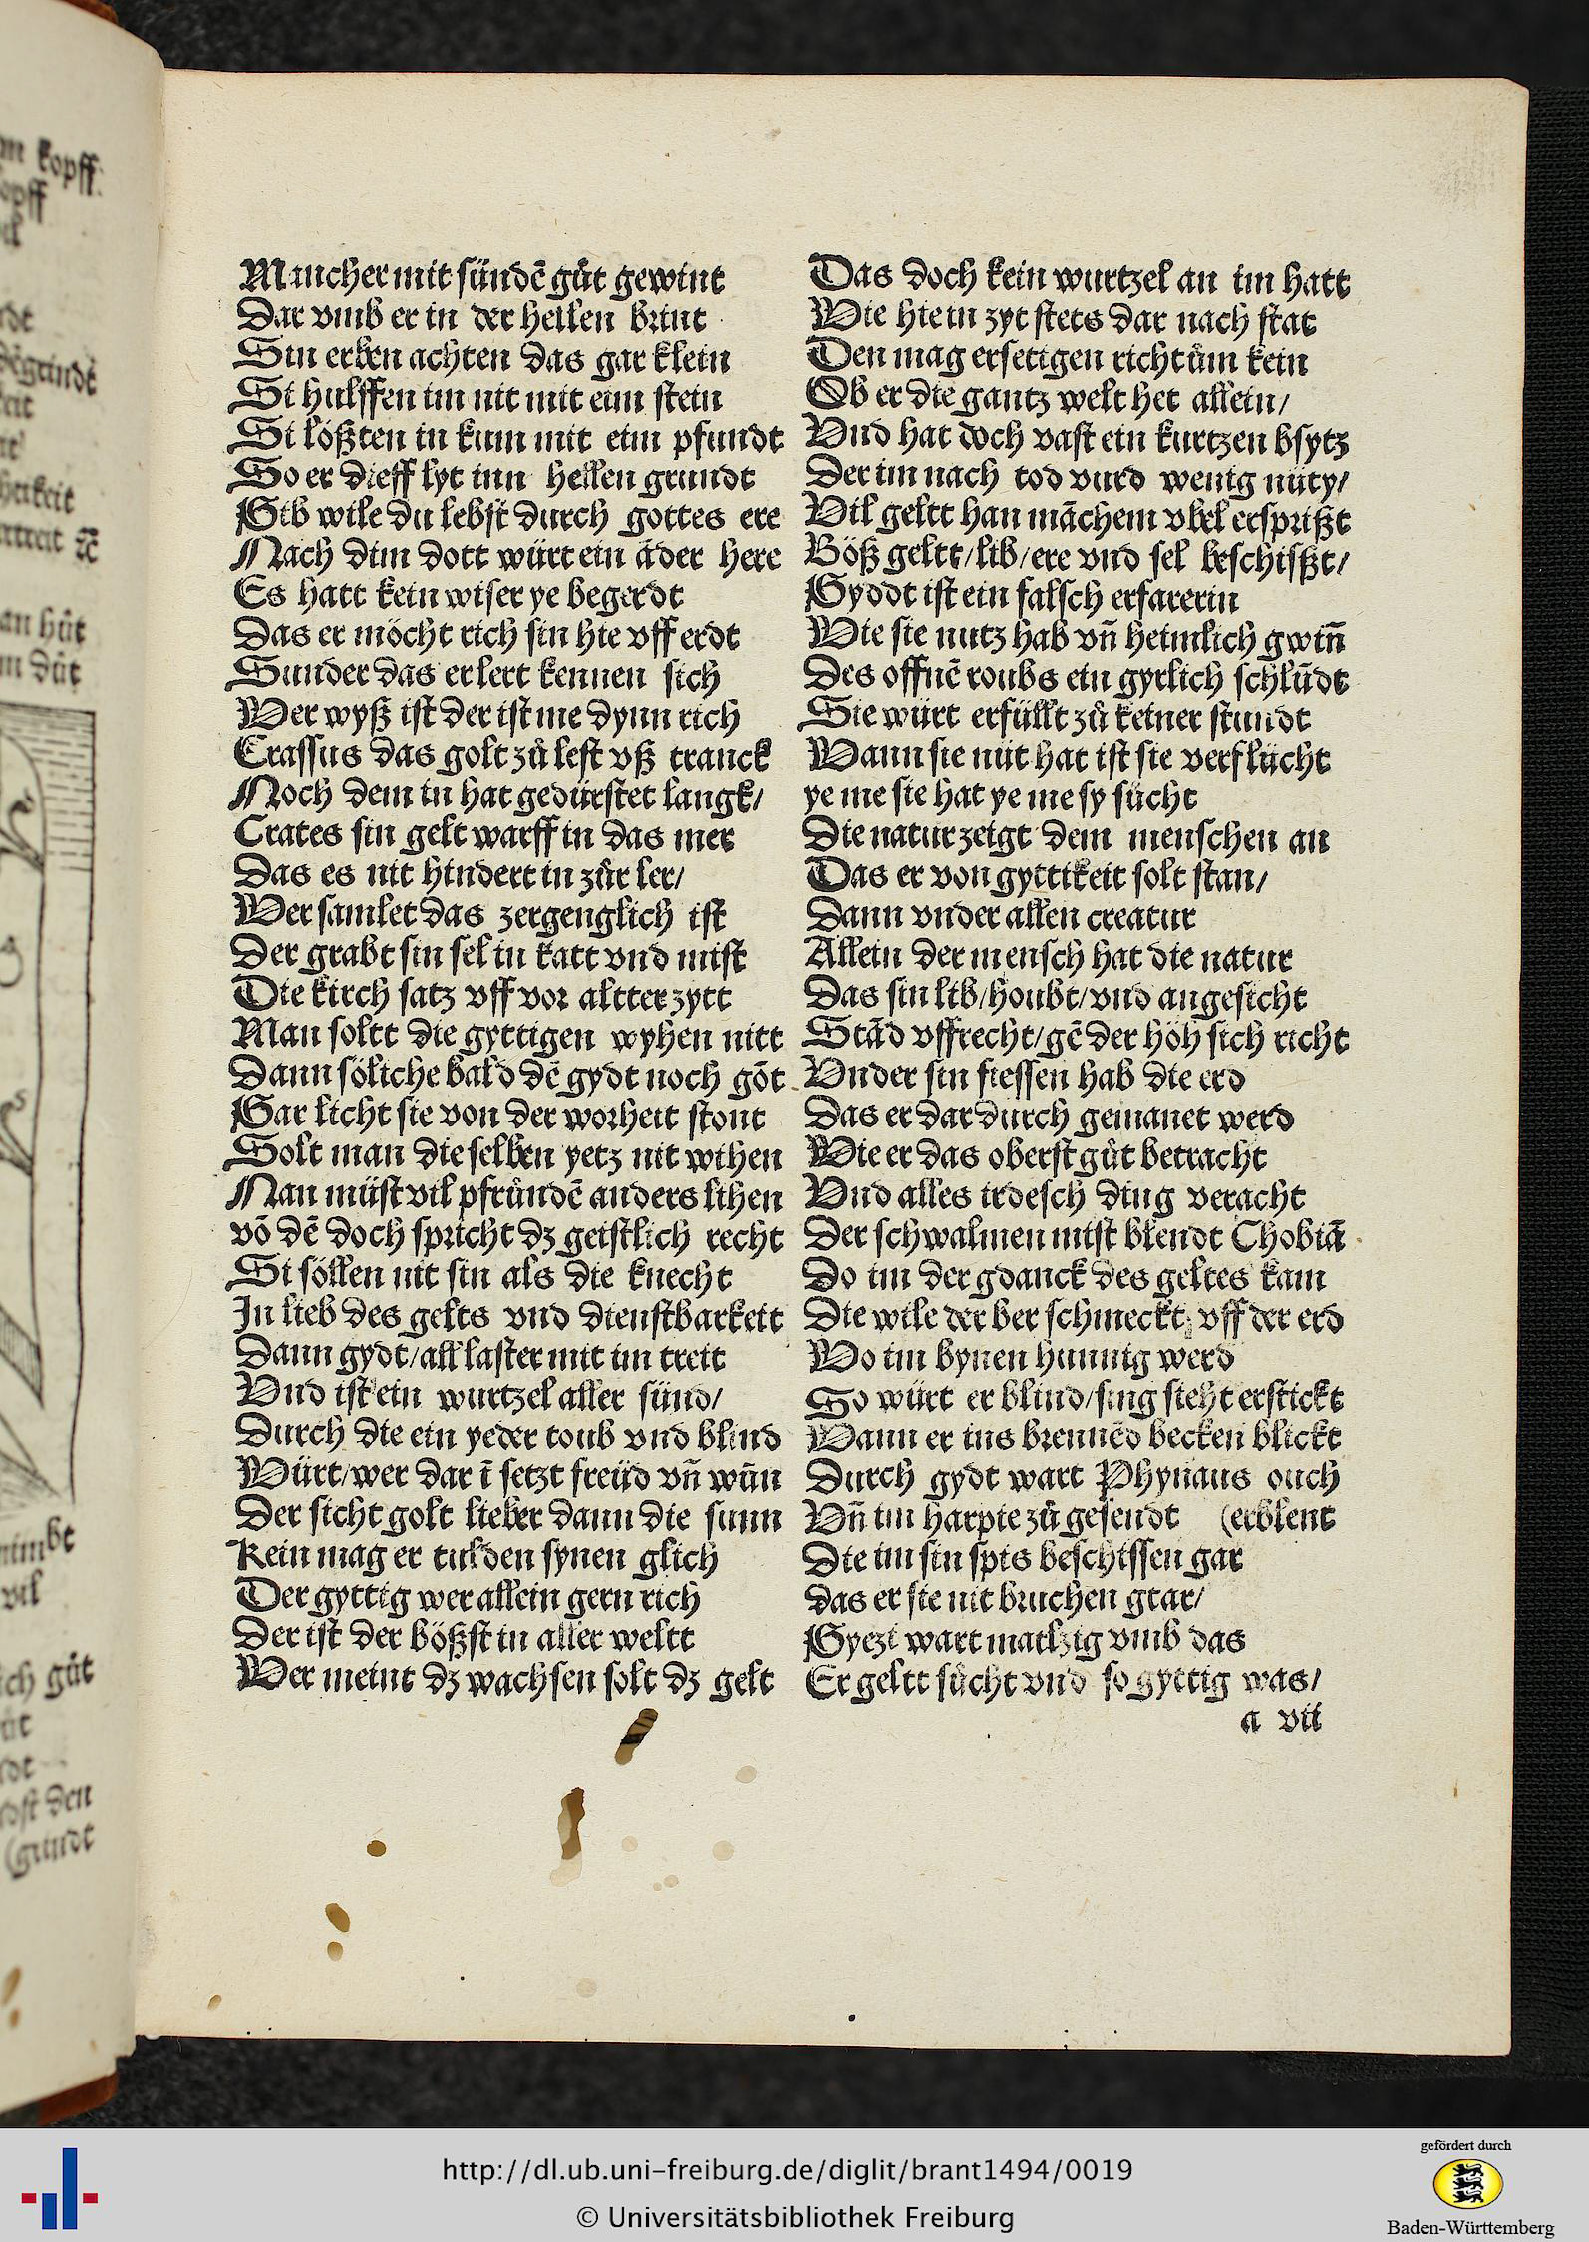 Mancher mit sündē gůt gewint
Dar vmb er in der hellen brint
Sin erben achten das gar klein
Si hulffen im nit mit eim stein
Si lößten in kum mit eim pfundt
So er dieff lyt inn hellen grundt
Gib wile du lebst durch gottes ere
Nach dim dott würt ein āder here
Es hatt kein wiser ye begerdt
Das er möcht rich sin hie vff erdt
Sunder das er lert kennen sich
Wer wyß ist der ist me dynn rich
Crassus das golt zů lest vß tranck
Noch dem in hat gedürstet langk/
Crates sin gelt warff in das mer
Das es nit hindert in zůr ler/
Wer samlet das zergenglich ist
Der grabt sin sel in katt vnd mist
Die kirch satz vff vor altter zytt
Man soltt die gyttigen wyhen nitt
Dann söliche bald dē gydt noch gōt
Gar licht sie von der worheit stont
Solt man die selben yetz nit wihen
Man müst vil pfründē anders lihen
vō dē doch spricht dz geistlich recht
Si söllen nit sin als die knecht
In lieb des gelts vnd dienstbarkeit
Dann gydt/all laster mit im treit
Vnd ist ein wurtzel aller sünd/
Durch die ein yeder toub vnd blind
Würt/wer dar ī setzt freüd vn̄ wūn
Der sicht golt lieber dann die sunn
Kein mag er tulden synen glich
Der gyttig wer allein gern rich
Der ist der bößst in aller weltt
Wer meint dz wachsen solt dz gelt
Das doch kein wurtzel an im hatt
Wie hie in zyt stets dar nach stat
Den mag ersettigen richtům kein
Ob er die gantz welt het allein/
Vnd hat doch vast ein kurtzen bsytz
Der im nach tod vurd wenig nüty/
Vil geltt han māchem vbel ersprißt
Böß geltt/lib/ere vnd sel beschißt/
Gyddt ist ein falsch erfarerin
Wie sie nutz hab vn̄ heimlich gwin̄
Des offnē roubs ein gyrlich schlūdt
Sie würt erfüllt zů keiner stundt
Wann sie nüt hat ist sie verflücht
ye me sie hat ye me sy sücht
Die natur zeigt dem menschen an
Das er von gyttikeit solt stan/
Dann vnder allen creatur
Allein der mensch hat die natur
Das sin lib/houbt/vnd angesicht
Stād vffrecht/gē der höh sich richt
Vnder sin fiessen hab die erd
Das er dar durch gemanet werd
Wie er das oberst gůt betracht
Vnd alles irdesch ding veracht
Der schwalmen mist blendt Thobiā
Do im der gdanck des geltes kam
Die wile der ber schmeckt vff der erd
Wo im bynen hunnig werd
So würt er blind/sing sieht erstickt
Wann er ins brennēd becken blickt
Durch gydt wart Phynaus ouch
Vn̄ im harpie zů gesendt (erblent
Die im sin spis beschissen gar
das er sie nit bruchen gtar/
Gyezi wart matlzig vmb das
Er geltt sůcht vnd so gyttig was/
a vii
http://dl.ub.uni-freiburg.de/diglit/brant1494/0019
© Universitätsbibliothek Freiburg
gefördert durch
Baden-Württemberg